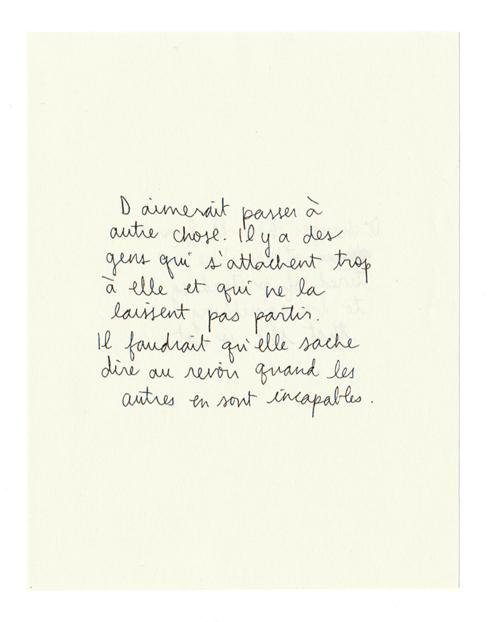 D aimerait passer à
autre chose. Il y a des
gens qui s'attachent trop
à elle et qui ne la
laissent pas partir.
Il faudrait qu'elle sache
dire au revoir quand les
autres en sont incapables.